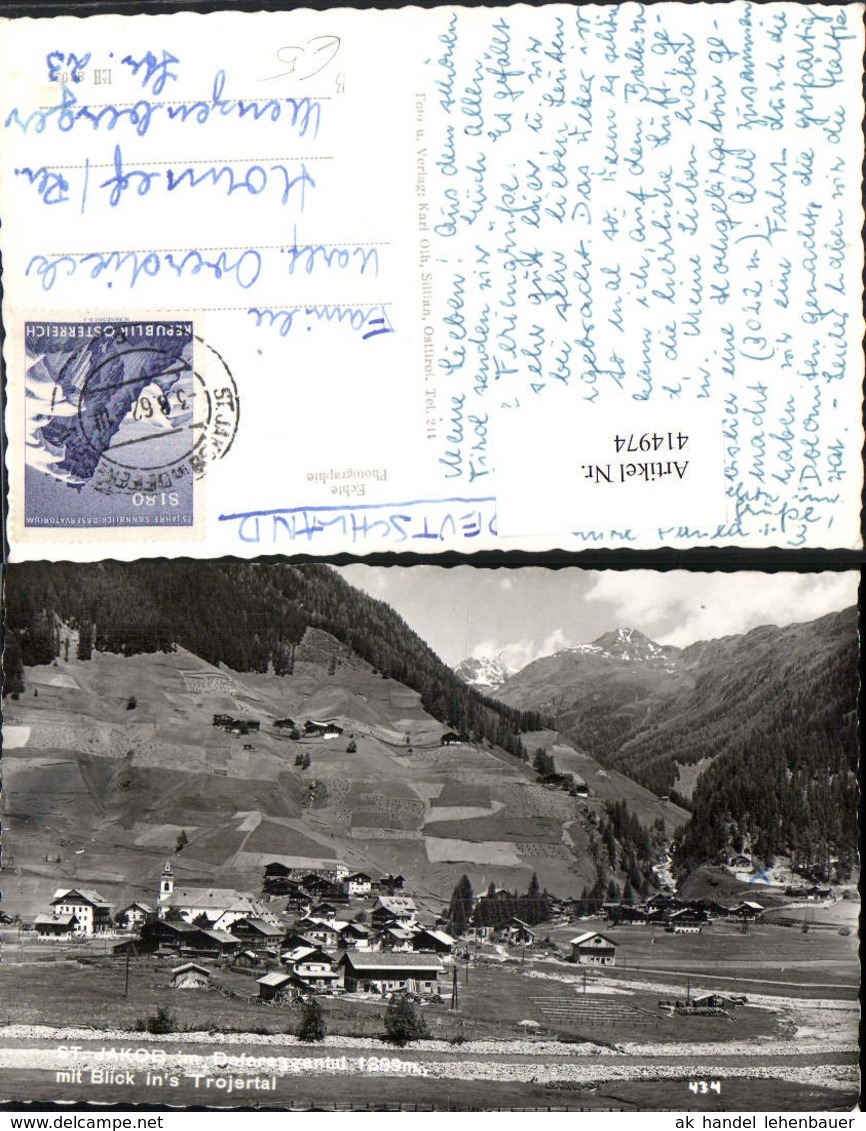 Meine Lieben! Aus dem schönen
Tirol senden wir Euch allen
Feriengrüße. Es gefällt
sehr gut hier u. wir
bei sehr lieben Leuten
gebracht. Das Wetter ist
mal so. Wenn es schön
kann ich auf dem Balkon
die herrliche Luft ge-
Meine Lieben haben
eine Hochgebirgstour ge-
macht (3022 m) Alle zusammen
haben wir eine Fahrt durch die
Dolomiten gemacht, die großartig
war. Leider haben wir die Hälfte
Foto u. Verlag: Karl Oth, Sillian, Osttirol. Tel. 214
Echte
Photographie
Artikel Nr.
414974
75 JAHRE SONNBLICK-OBSERVATORIUM
S1.80
REPUBLIK ÖSTERREICH
ST. JAKOB
-3.8.62
Familie
Overdieck
Honnef/Rh.
Menzenberger
Str. 23
DEUTSCHLAND
ST. JAKOB im Defereggental 1389m.,
mit Blick in's Trojertal
434
ak handel lehenbauer